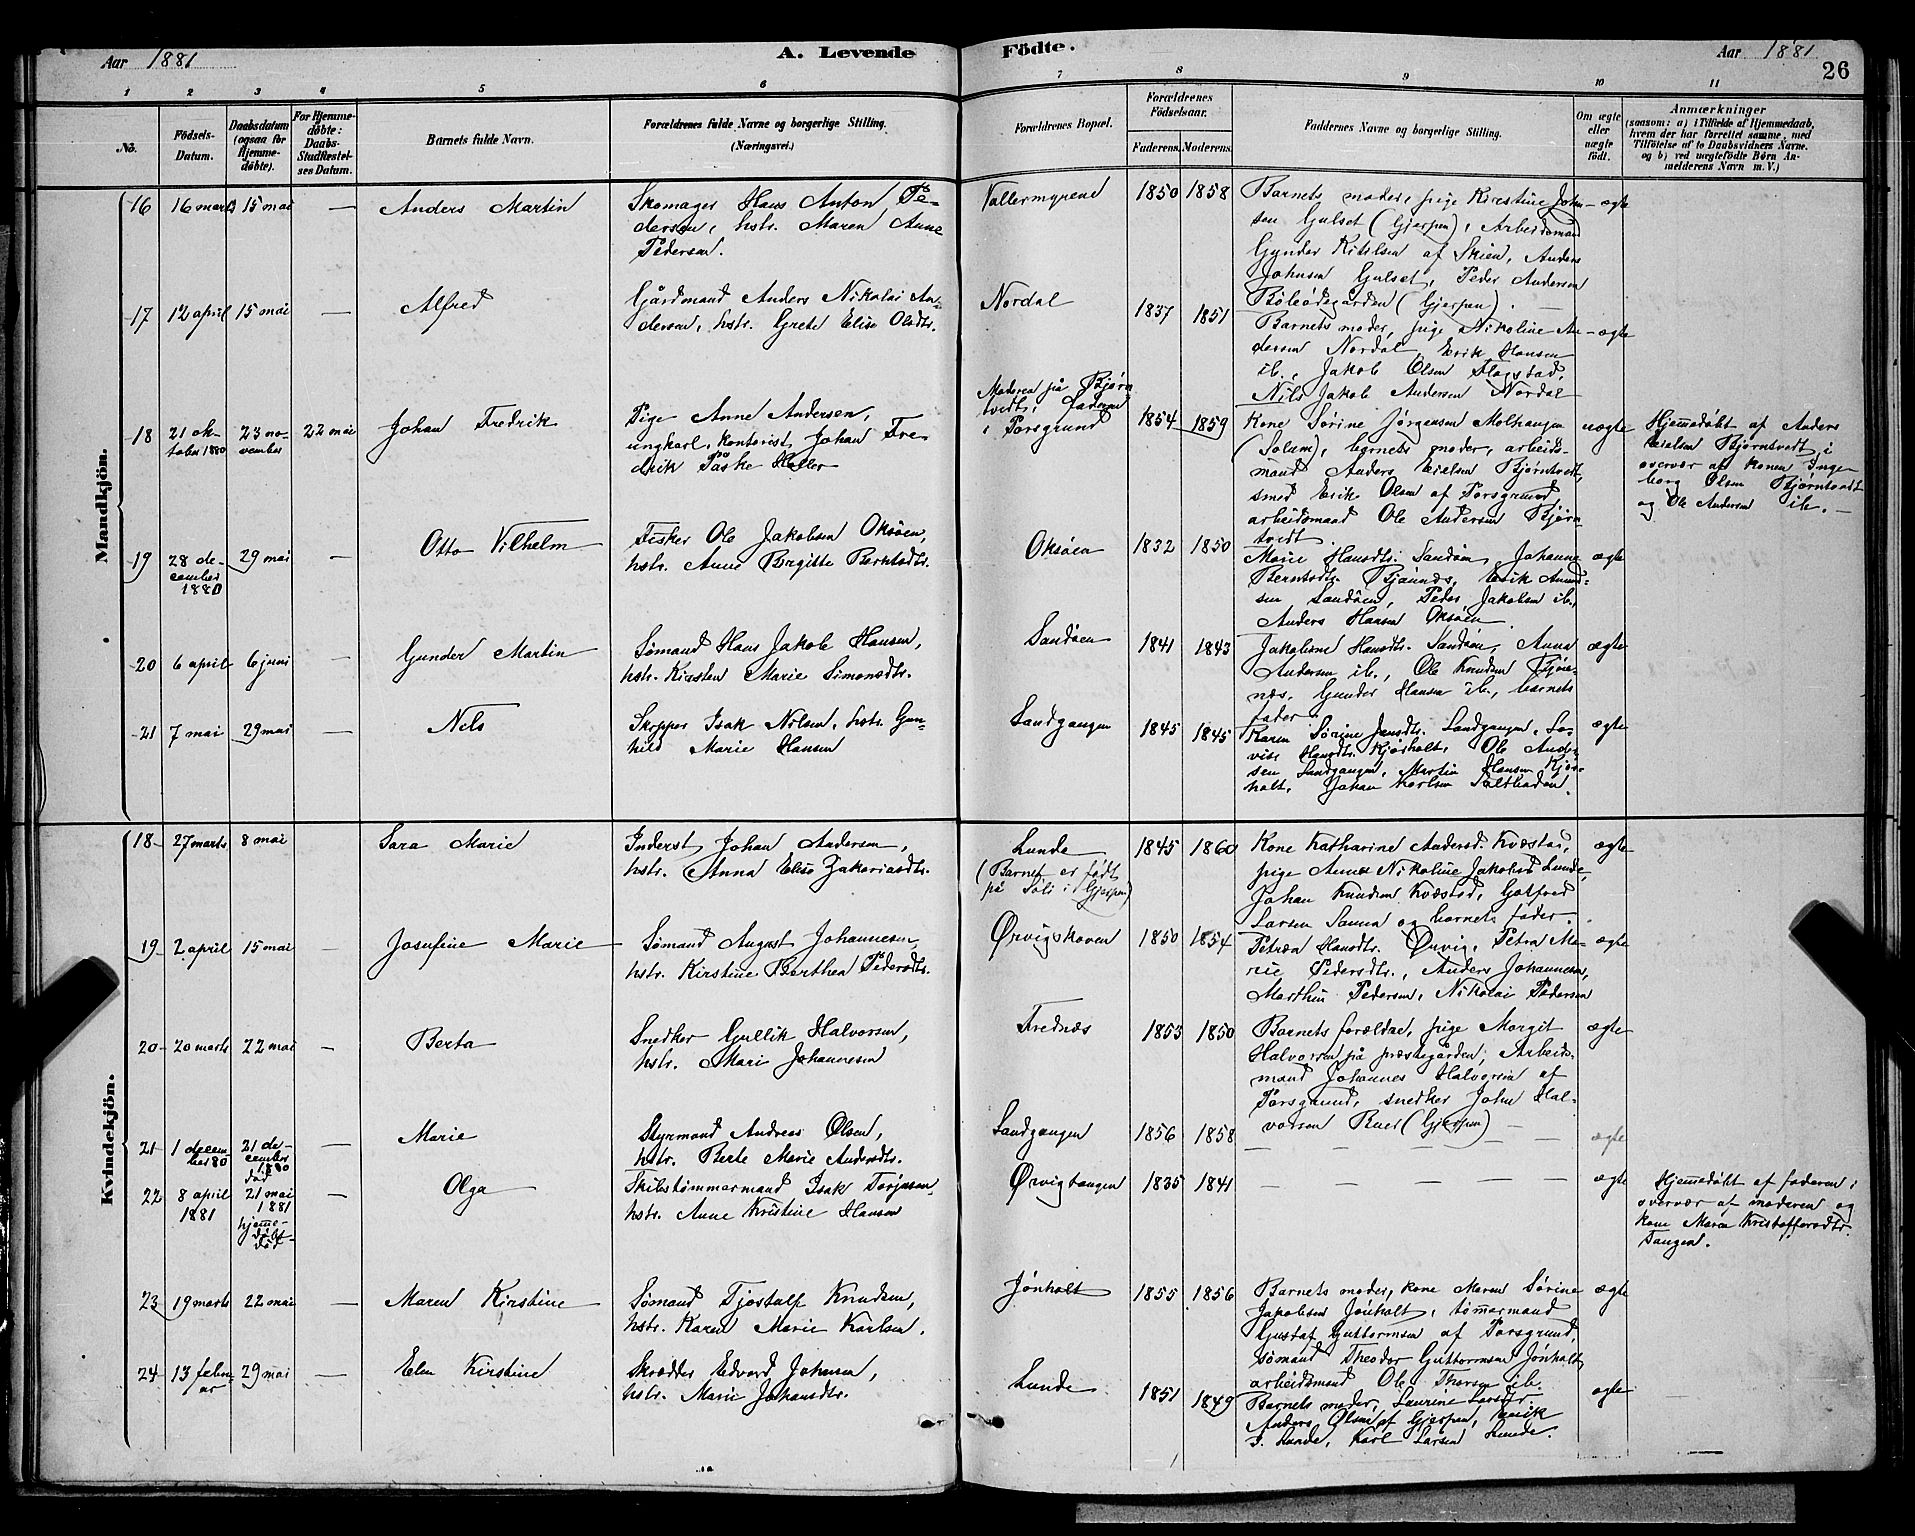 Aar 1881 A. Levende Födte. Aar 1881
26
1 2 3 4 5 6 7 8 9 10 11
No.
Födsels-Datum.
Daabsdatum (ogsaa for Hjemme-døbte).
For Hjemme-døbte: Daabs-Stadfæstel-ses Datum.
Barnets fulde Navn.
Forældrenes fulde Navne og borgerlige Stilling. (Næringsvei.)
Forældrenes Bopæl.
Forældrenes Födselsaar.
Faderens. Moderens.
Faddernes Navne og borgerlige Stilling.
Om ægte eller uægte født.
Anmærkninger
(saasom: a) i Tilfælde af Hjemmedaab,
hvem der har forrettet samme, med
Tilføielse af to Daabsvidners Navne.
og b) ved uægtefödte Börn An-
melderens Navn m. V.)
Mandkjön.
16 16 marts 15 mai — Anders Martin
Skomager Hans Anton Pe-
dersen, hstr. Maren Anne
Pedersen.
Vallermyrene 1850 1858
Barnets moder, pige Kirstine John-
sen Gulset (Gjerpen), Arbeidsmand
Gunder Kittilsen af Skien, Anders
Johnsen Gulset, Peder Andersen
Böleödegården (Gjerpen).
ægte
17 12 april 15 mai — Alfred
Gårdmand Anders Nikolai An-
dersen, hstr. Grete Elise Olsdtr.
Nordal 1837 1851
Barnets moder, pige Nikoline An-
dersen Nordal, Erik Hansen
ib., Jakob Olsen Flogstad,
Nils Jakob Andersen Nordal
ægte
18 21 oktober 1880 23 november 22 mai Johan Fredrik
Pige Anne Andersen,
ungkarl, kontorist Johan Fre-
drik Påske Høller
Moderen på Bjørn-
tvedt, faderen
i Porsgrund 1854 1859
Kone Sørine Jørgensen Molhaugen
(Solum), barnets moder, arbeids-
mand Anders Eielsen Bjørntvedt,
smed Erik Olsen af Porsgrund,
arbeidsmand Ole Andersen Bjørn-
tvedt
uægte
Hjemmedøbt af Anders
Eielsen Bjørntvedt i
overvær af konen Inge-
borg Olsen Bjørntvedt
og Ole Andersen ib. —
19 28 december 1880 29 mai — Otto Vilhelm
Fisker Ole Jakobsen Oksøen,
hstr. Anne Birgitte Berntsdtr.
Oksøen 1832 1850
Marie Hansdtr. Sandøen, Johanne
Berntsdtr. Bjønnes, Erik Amund-
sen Sandøen, Peder Jakobsen ib.,
Anders Hansen Oksøen
ægte
20 6 april 6 juni — Gunder Martin
Sømand Hans Jakob Hansen,
hstr. Kirsten Marie Simonsdtr.
Sandøen 1841 1843
Jakobine Hansdtr. Sandøen, Anne
Andersen ib., Ole Knudsen Bjøn-
næs, Gunder Hansen ib., barnets
fader
ægte
21 7 mai 29 mai — Nils
Skipper Isak Nilsen, hstr. Gun-
hild Marie Hansen
Sandgangen 1845 1845
Karen Sørine Jensdtr. Sandgangen, Lo-
vise Hansdtr. Kjørholt, Ole Ander-
sen Sandgangen, Martin Hansen Kjør-
holt, Johan Karlsen Saltboden.
ægte
Kvindekjön.
18 27 marts 8 mai Sara Marie
Inderst Johan Andersen,
hstr. Anna Elise Zakariasdtr.
Lunde
(Barnet er født
på Söli i Gjerpen) 1845 1860
Kone Katharine Andersd. Kvæstad,
pige Anne Nikoline Jakobsd. Lunde,
Johan Knudsen Kvæstad, Gotfred
Larsen Sanna og barnets fader.
ægte
19 2 april 15 mai — Josefine Marie
Sømand August Johannesen,
hstr. Kirstine Berthea Pedersdtr.
Ørvigskoven 1850 1854
Petrea Hansdtr. Ørvig, Petra Ma-
rie Pedersdtr., Anders Johannesen,
Marthin Pedersen, Nikolai Pedersen
ægte
20 20 marts 22 mai — Berta
Snedker Gullik Halvorsen,
hstr. Mari Johannesen
Frednæs 1853 1850
Barnets forældre, pige Margit
Halvorsen på præstegården, Arbeids-
mand Johannes Halvorsen af
Porsgrund, snedker John Hal-
vorsen Buer (Gjerpen)
ægte
21 1 december 80 21 december 1880 død — Marie
Styrmand Andreas Olsen,
hstr. Berte Marie Andersdtr.
Sandgangen 1856 1858 — — — — — ægte
22 8 april 1881 21 mai 1881 hjemme-døbt død — Olga
Skibstømmermand Isak Torjusen,
hstr. Anne Kristine Hansen
Ørvigtangen 1835 1841 — — — — — ægte
Hjemmedøbt af faderen i
overvær af moderen og
kone Maren Kristoffersdtr.
Tangen.
23 19 marts 22 mai — Maren Kirstine
Sømand Tjøstulf Knudsen,
hstr. Karen Marie Karlsen.
Jønholt 1855 1856
Barnets moder, kone Maren Sørine
Jakobsen Jønholt, tømmermand
Gustaf Guttormsen af Porsgrund,
sømand Theodor Guttormsen Jønholt,
arbeidsmand Ole Thorsen ib.
ægte
24 13 februar 29 mai — Elen Kirstine
Skrædder Edvard Johnsen,
hstr. Marie Johansdtr.
Lunde 1851 1849
Barnets moder, Laurine Larsdtr.
Anders Olsen af Gjerpen, Erik
Lunde, Karl Larsen Lunde.
ægte